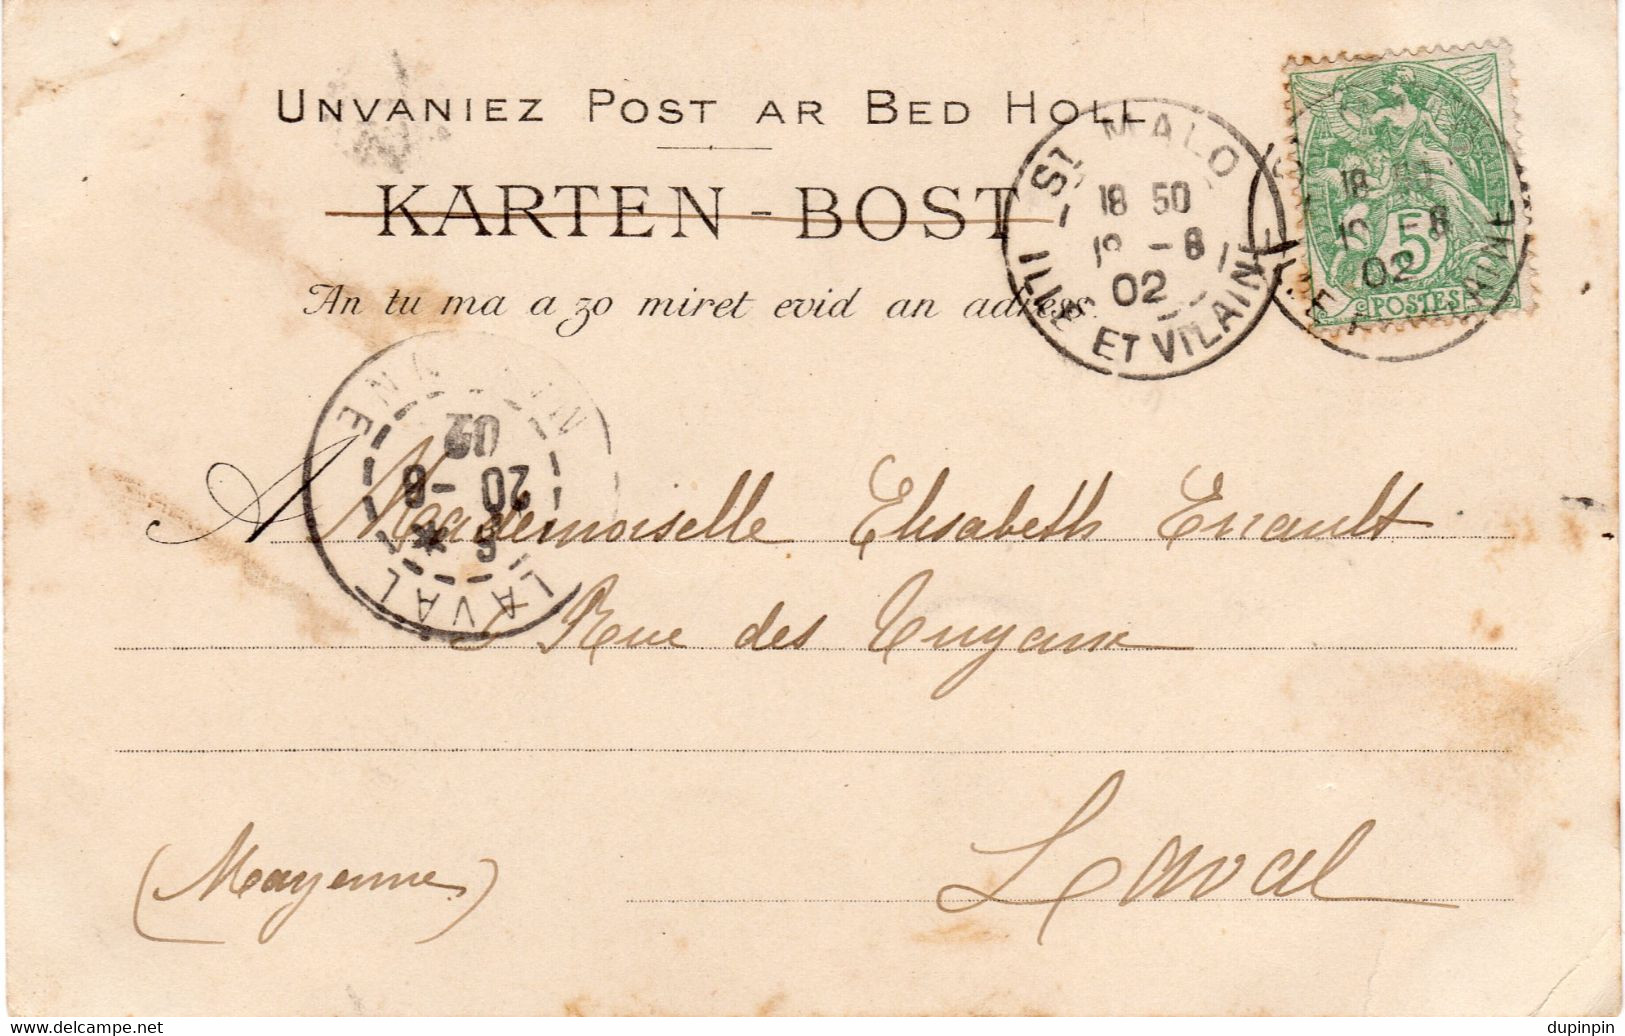 UNVANIEZ POST AR BED HOLL
KARTEN-BOST
An tu ma a zo miret evid an adress.
ST MALO
18 50
19 -8
02
ILLE ET VILAINE
5
POSTES
MAYENNE
02
20 -8
5
LAVAL
A Mademoiselle Elisabeth Enault
Rue des Tuyaux
Laval
(Mayenne)
delcampe.net
dupinpin